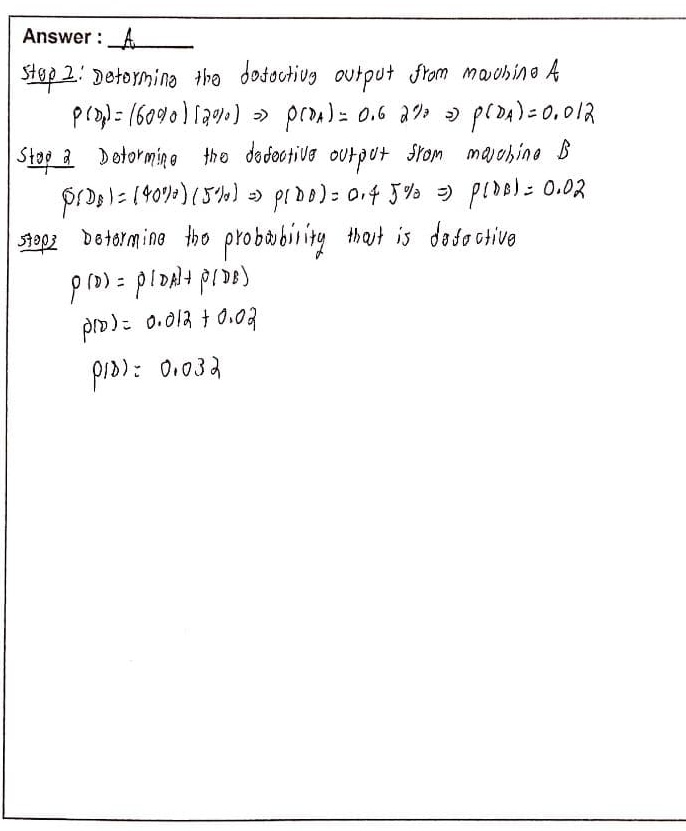 Answer : A
Step 1: Determine the defective output from machine A
P(DA) = (60%)(2%) ⇒ P(DA) = 0.6 2% ⇒ P(DA) = 0.012
Step 2 Determine the defective output from machine B
P(DB) = (40%)(5%) ⇒ P(DB) = 0.4 5% ⇒ P(DB) = 0.02
Step3 Determine the probability that is defective
P(D) = P(DA) + P(DB)
P(D) = 0.012 + 0.02
P(D) = 0.032